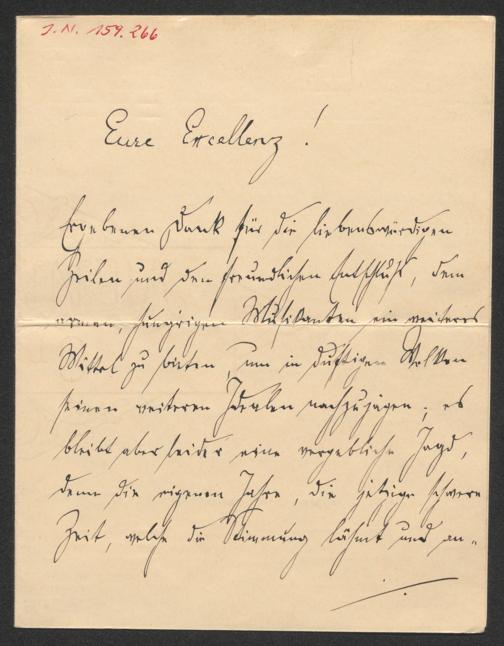 J. N. 159.266
Eure Excellenz!
Ergebenen Dank für die liebenswürdigen
Zeilen und den freundlichen Entschluß, dem
armen, hungrigen Musikanten ein weiteres
Mittel zu bieten, um in duftigen Wolken
seinen weiteren Idealen nachzujagen; es
bleibt aber leider eine vergebliche Jagd,
denn die eigenen Jahre, die jetzige schwere
Zeit, welche die Stimmung lähmt und an-